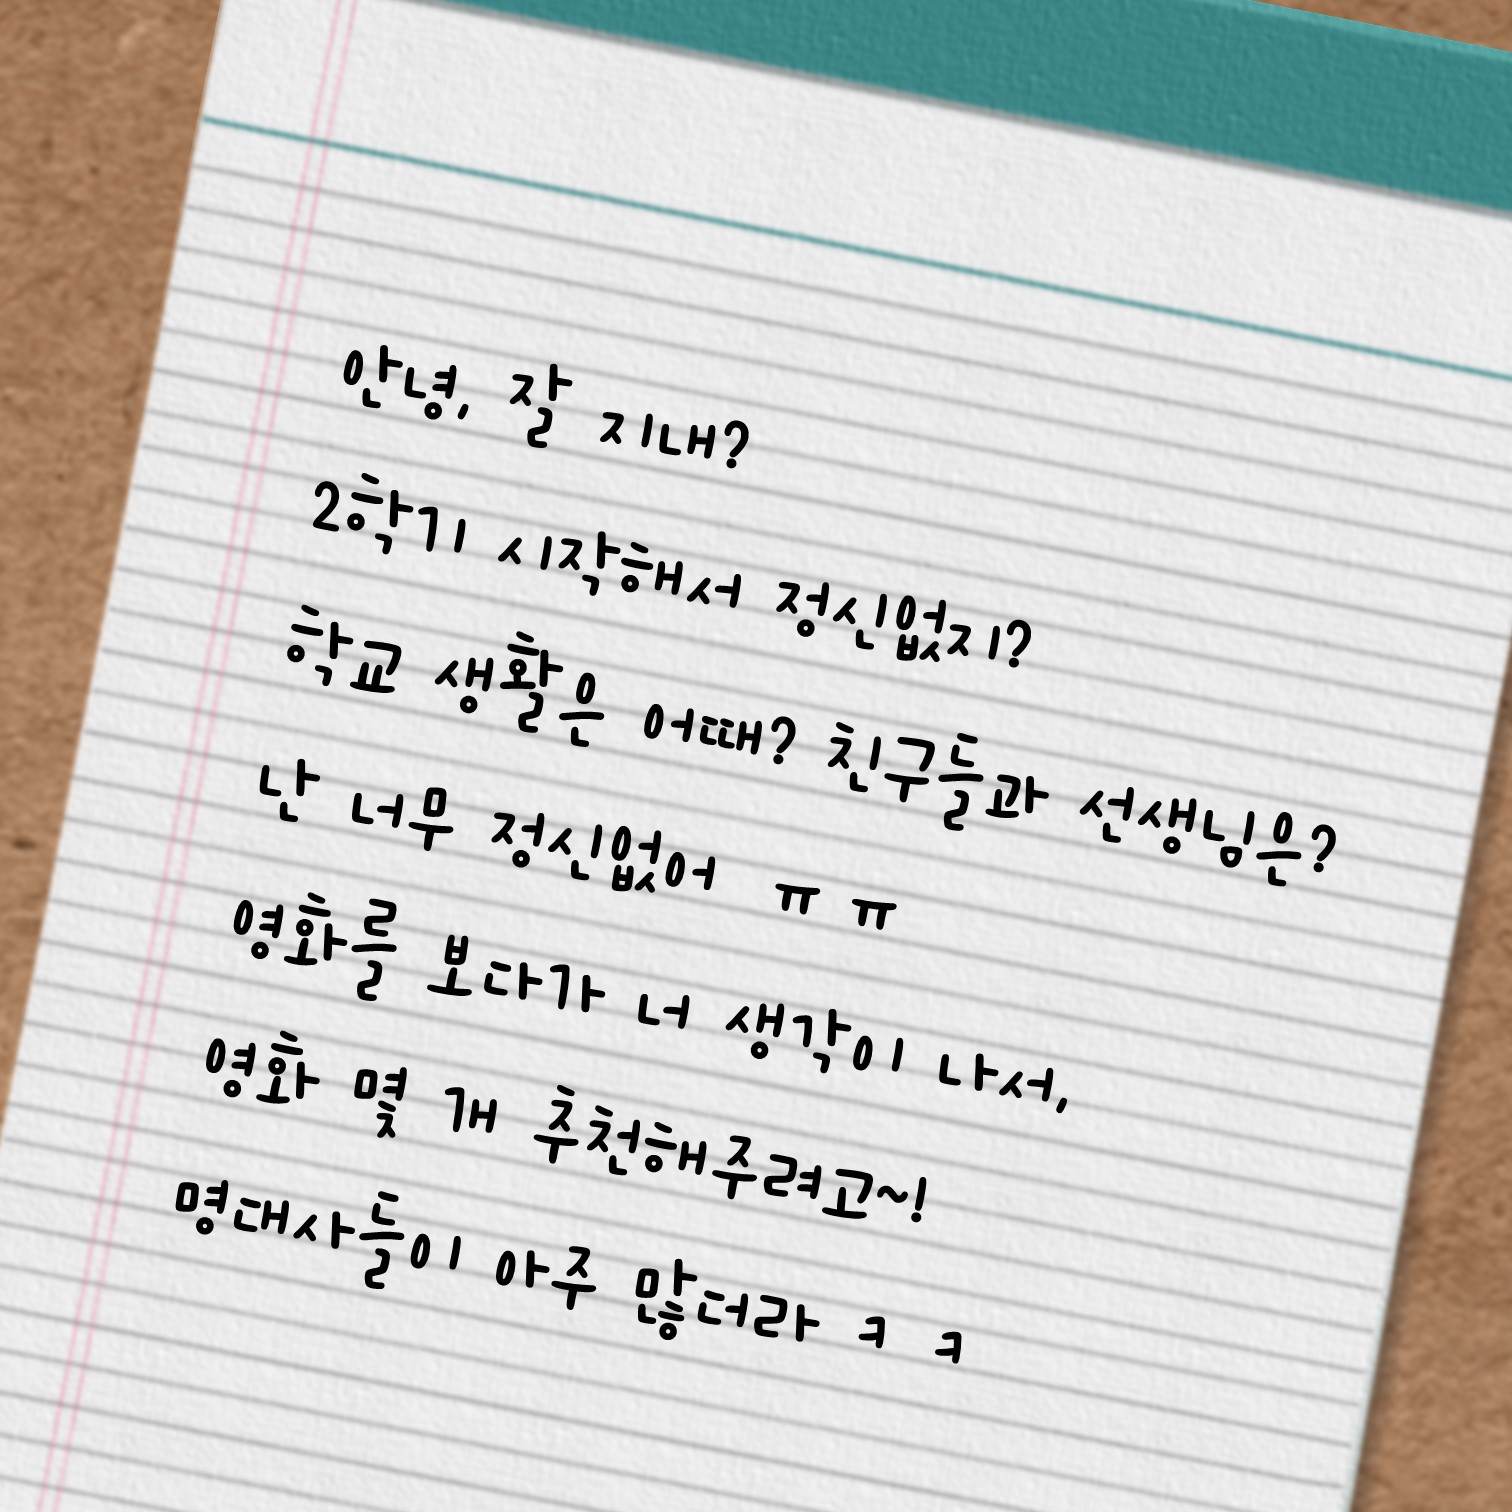 안녕, 잘 지내?
2학기 시작해서 정신없지?
학교 생활은 어때? 친구들과 선생님은?
난 너무 정신없어 ㅠ ㅠ
영화를 보다가 너 생각이 나서,
영화 몇 개 추천해주려고~!
명대사들이 아주 많더라 ㅋ ㅋ